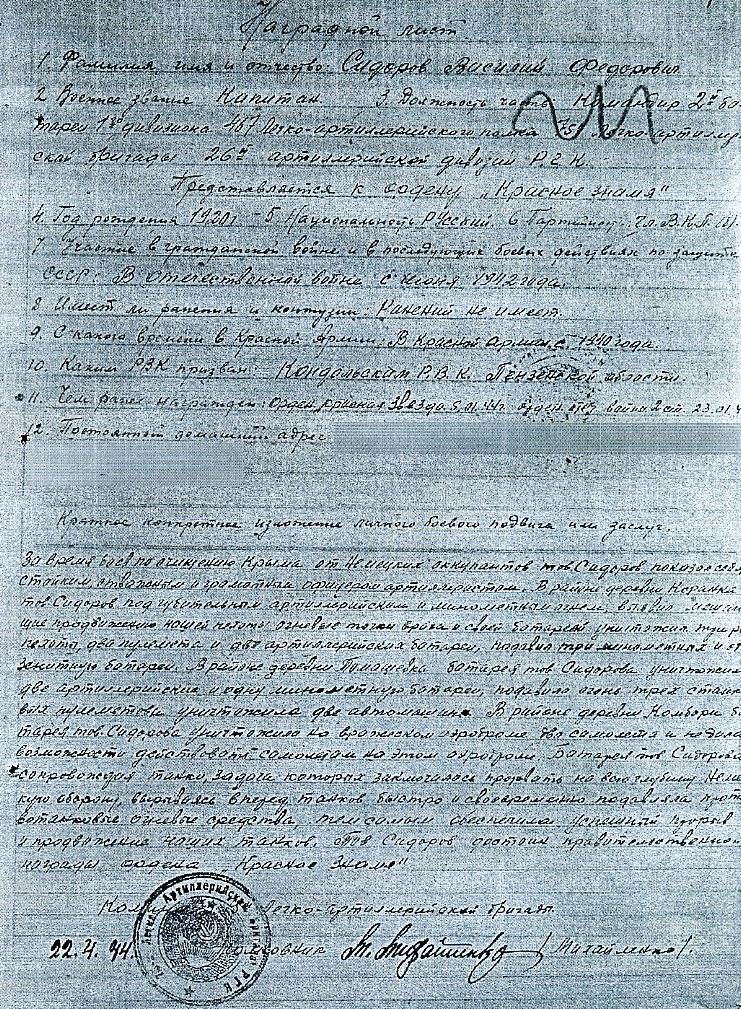 Наградной лист
1. Фамилия, имя и отчество: Сидоров Василий Федорович
2. Военное звание Капитан 3. Должность часть Командир 2й ба-
тареи 1го дивизиона 457 Легко-артиллерийского полка легко-артиллерий
ской бригады 26й артиллерийской дивизии Р.Г.К.
Представляется к ордену „Красное знамя"
4. Год рождения 1920г - 5 Национальность Русский. 6 Партийность: Чл. В.К.П.(б)
7. Участие в гражданской войне и в последующих боевых действиях по защите
СССР: В Отечественной войне с июля 1942 года.
8. Имеет ли ранения и контузии: Ранений не имеет.
9. С какого времени в Красной Армии: В Красной Армии с 1940 года
10. Каким РВК призван: Кондольским Р.В.К. Пензенской области.
11. Чем ранее награжден: Орден Красная Звезда 5.01.44г. Орден От. война 2 ст. 23.01.4
12. Постоянный домашний адрес
Краткое конкретное изложение личного боевого подвига или заслуг.
За время боев по очищению Крыма от Немецких оккупантов тов. Сидоров показал себя
стойким, отважным и грамотным офицером артиллеристом. В районе деревни
тов Сидоров под губительным артиллерийским и минометным огнем, выявил мешаю-
щие продвижению нашей пехоты огневые точки врага и своей батареей уничтожил
пехоты, два пулемета и две артиллерийских батареи, подавил три минометных и
зенитную батареи. В районе деревни Томашевка батарея тов Сидорова уничтожила
две артиллерийские и одну минометную батареи, подавила огонь трех станко-
вых пулеметов уничтожила две автомашины. В районе деревни Комбары ба-
тарея тов. Сидорова уничтожила на вражеском аэродроме два самолета и не дала
возможности действовать самолетам на этом аэродроме. Батарея тов Сидорова
сопровождая танки, задача которых заключалась прорвать на всю глубину Немец-
кую оборону, вырываясь вперед танков быстро и своевременно подавляла проти-
вотанковые огневые средства, тем самым обеспечила успешный прорыв
и продвижение наших танков. Тов Сидоров достоин правительственной
награды ордена „Красное Знамя"
Легко-артиллерийской бригады
22.4.44. Полковник /Михайленко/.